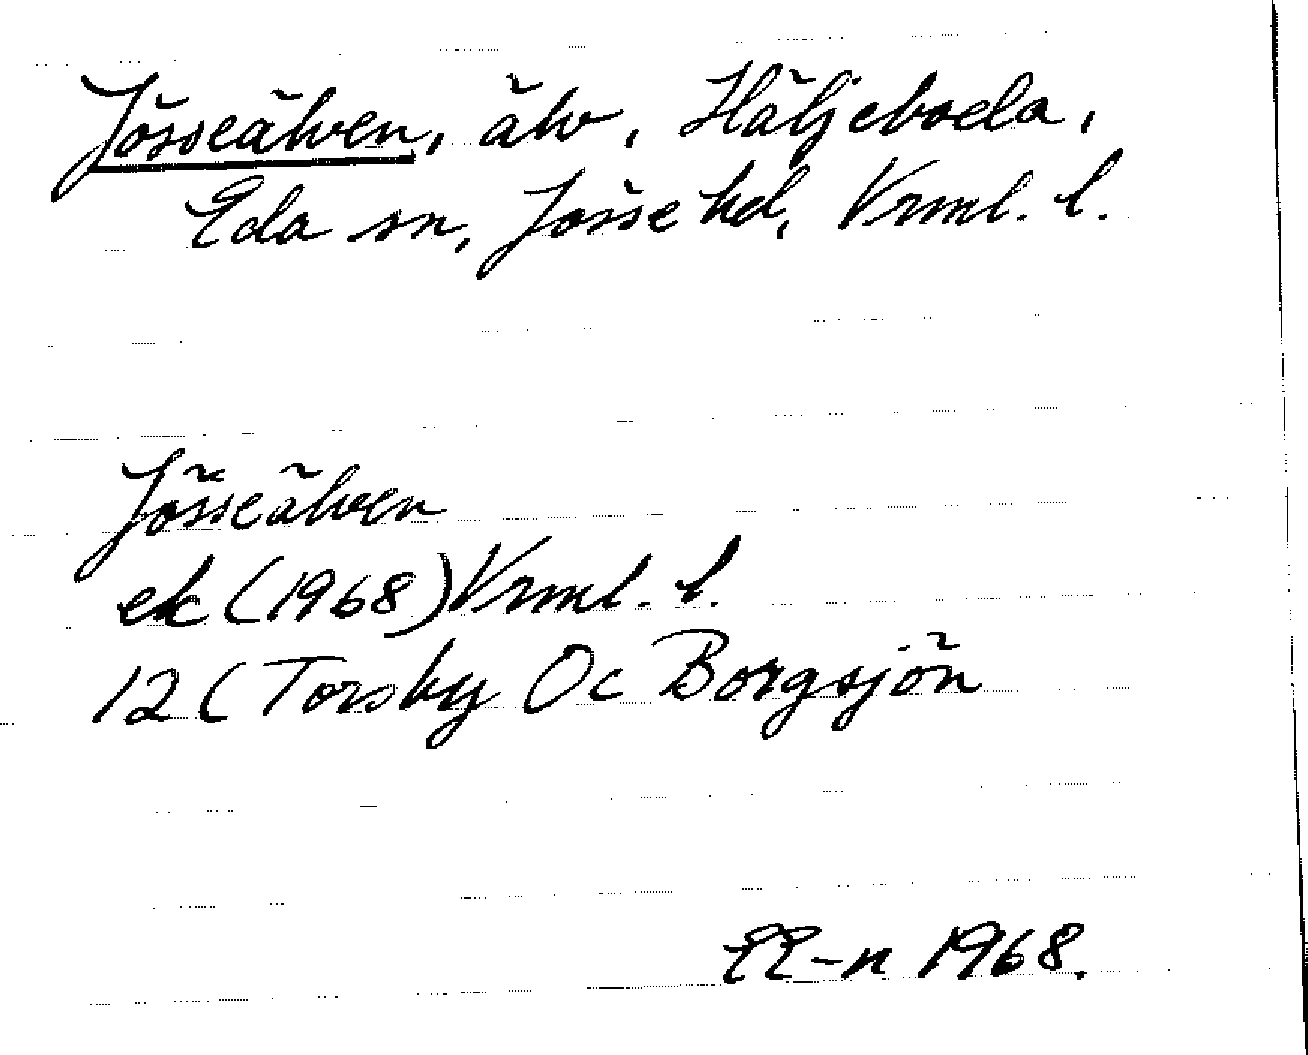 Jösseälven, älv, Häljeboda,
Eda sn, Jösse hd, Vrml. l.
Jösseälven
ek (1968) Vrml. l.
12 C Torsby Oc Borgsjön
EE-n 1968.